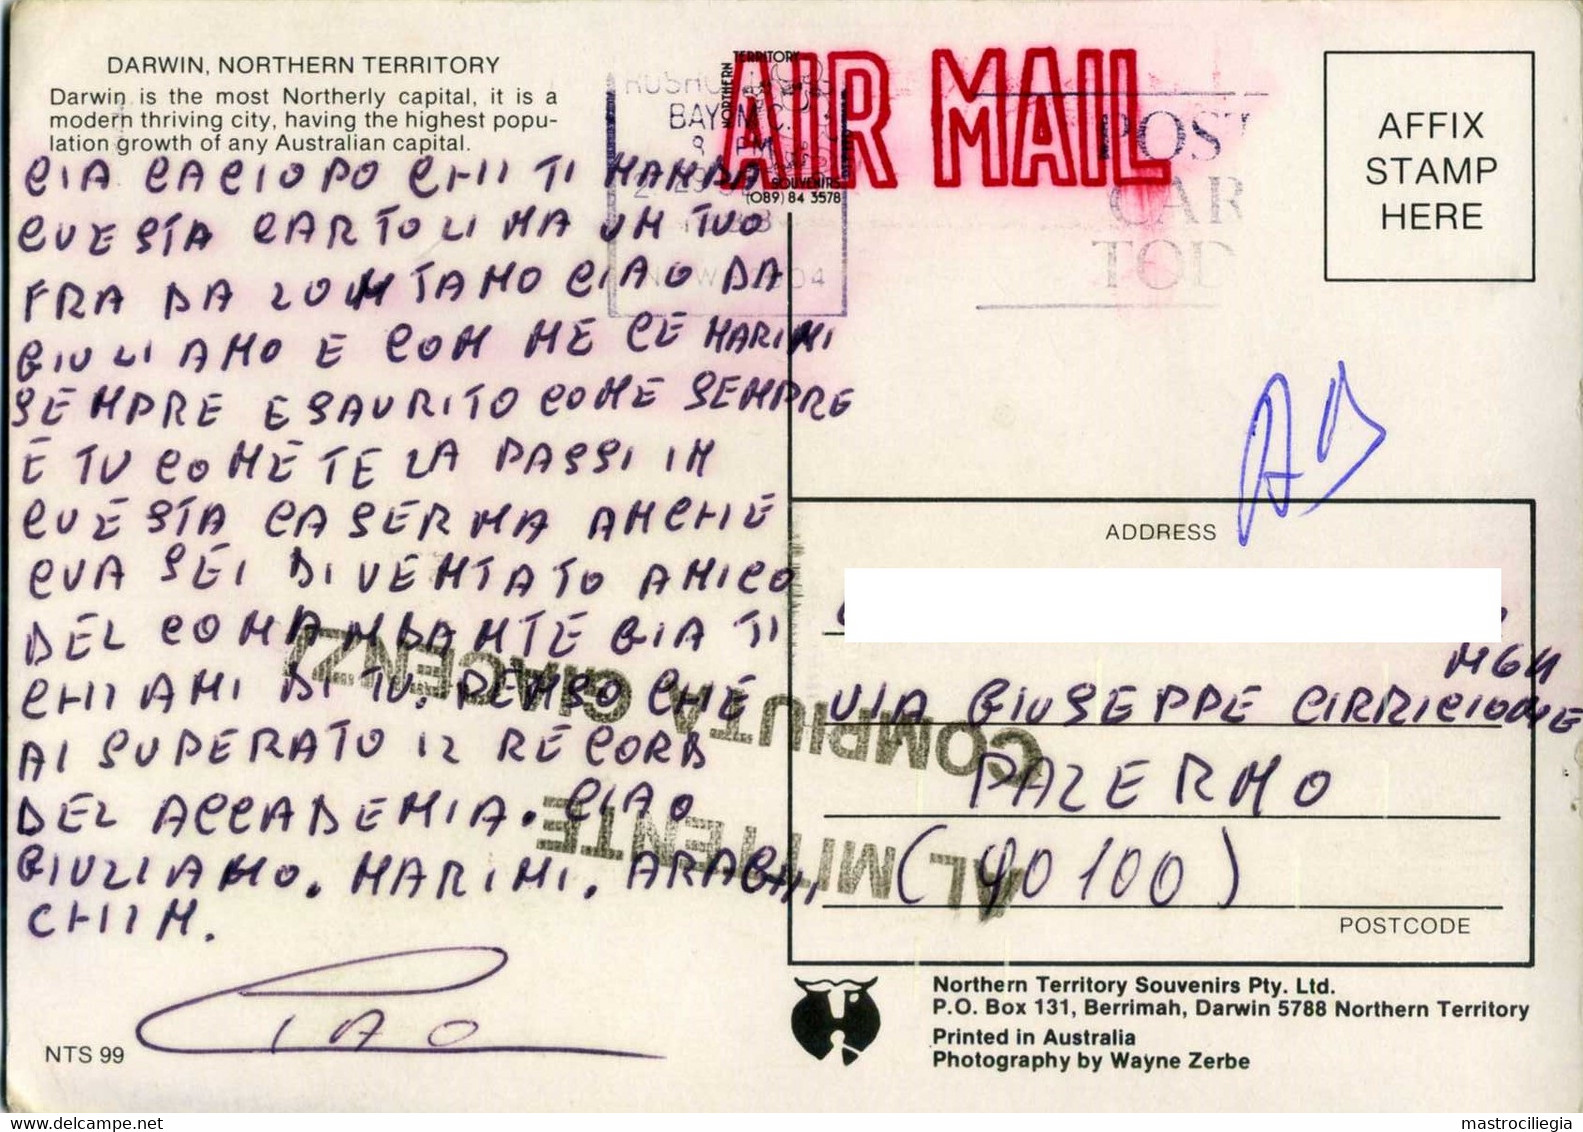 DARWIN, NORTHERN TERRITORY
Darwin is the most Northerly capital, it is a
modern thriving city, having the highest popu-
lation growth of any Australian capital.
CIA CACIOPO CHI TI MANDA
CUESTA CARTOLINA UN TUO
FRA DA LONTANO CIAO DA
GIULIANO E COM ME CE MARINI
SEMPRE ESAURITO COME SEMPRE
E TU COME TE LA PASSI IN
CUESTA CASERMA ANCHE
CUA SEI DIVENTATO AMICO
DEL COMANDANTE GIA TI
CHIAMI DI TU. PENSO CHE
AI SUPERATO IL RECORD
DEL ACCADEMIA. CIAO
GIULIANO. MARINI. ARAGHI
CHIIM.
CIAO
NTS 99
NORTHERN TERRITORY
SOUVENIRS
(089) 84 3578
BAY M.C.
PM
AIR MAIL
POST
CAR
TOD
AFFIX
STAMP
HERE
COMPIUTA GIACENZ
AL MITTENTE
ADDRESS
VIA GIUSEPPE CIRRICIONE
PALERMO
(90100)
POSTCODE
Northern Territory Souvenirs Pty. Ltd.
P.O. Box 131, Berrimah, Darwin 5788 Northern Territory
Printed in Australia
Photography by Wayne Zerbe
www.delcampe.net
mastrociliegia